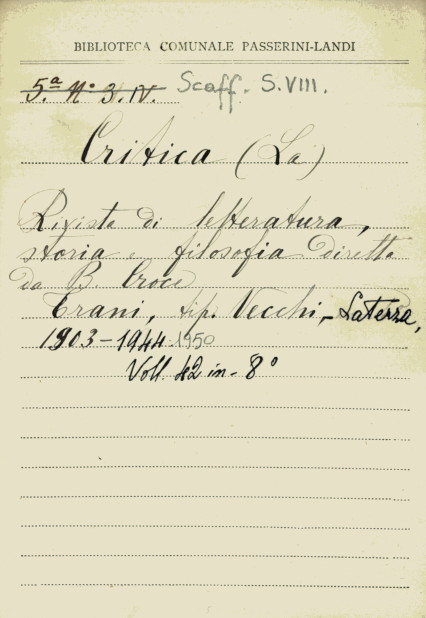 BIBLIOTECA COMUNALE PASSERINI-LANDI
5.ª N.º 3. IV. Scaff. S.VIII.
Critica (La)
Rivista di letteratura,
storia e filosofia diretta
da B. Croce
Trani, tip. Vecchi, - Laterza,
1903-1944-1950
Voll. 42 in-8º